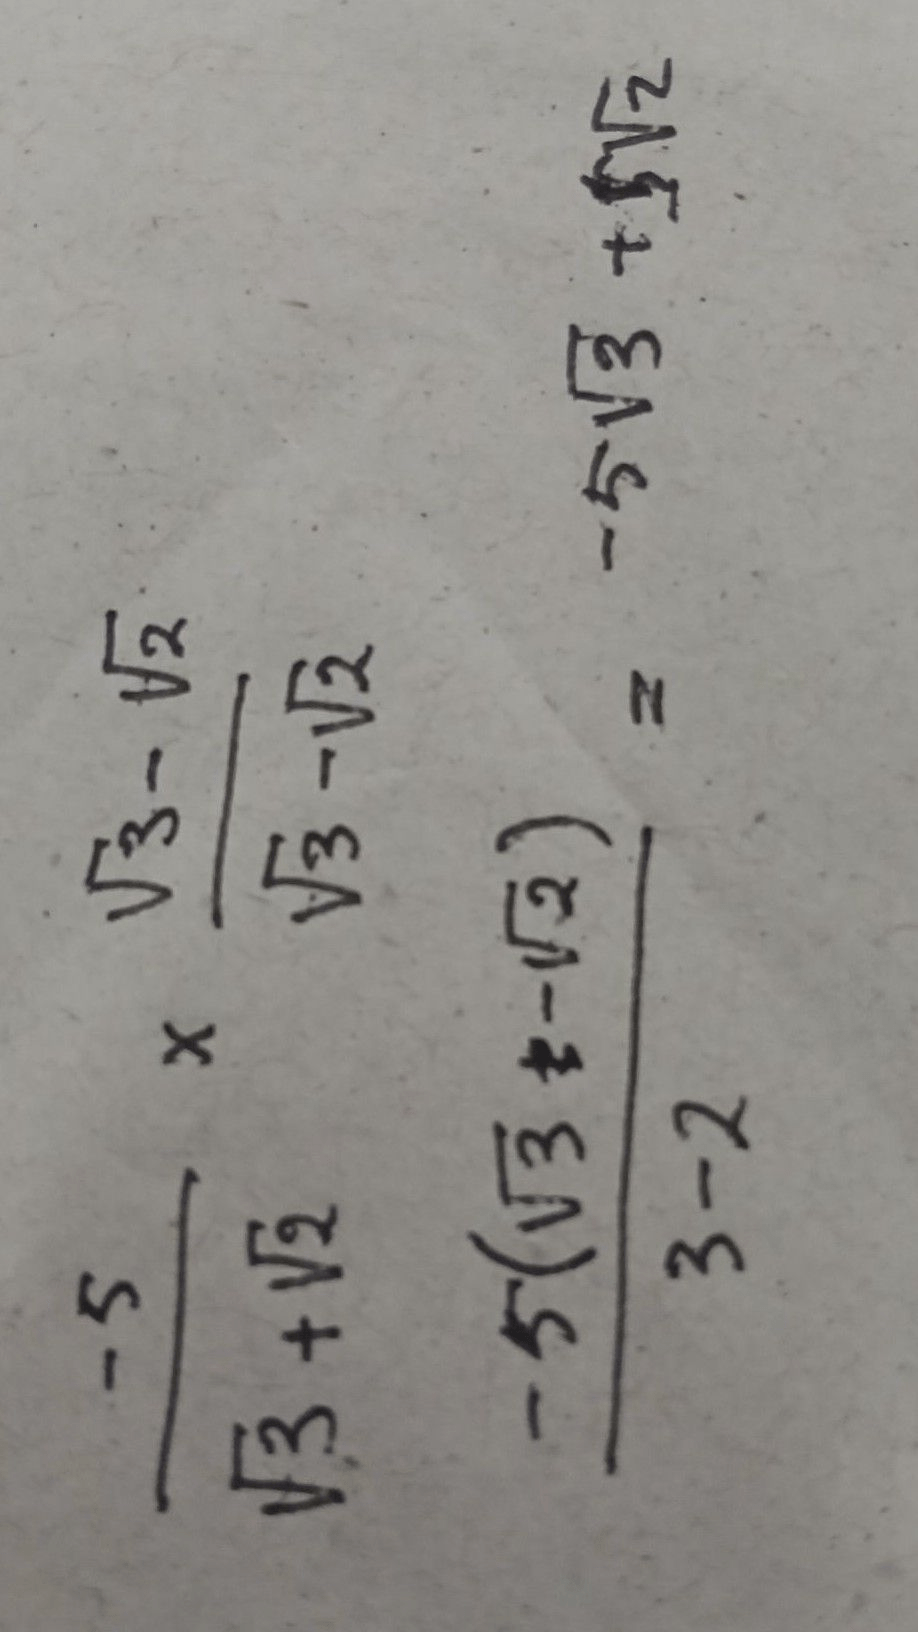 -5 / √3 + √2 x √3 - √2 / √3 - √2
-5(√3 - √2) / 3 - 2 = -5√3 + 5√2